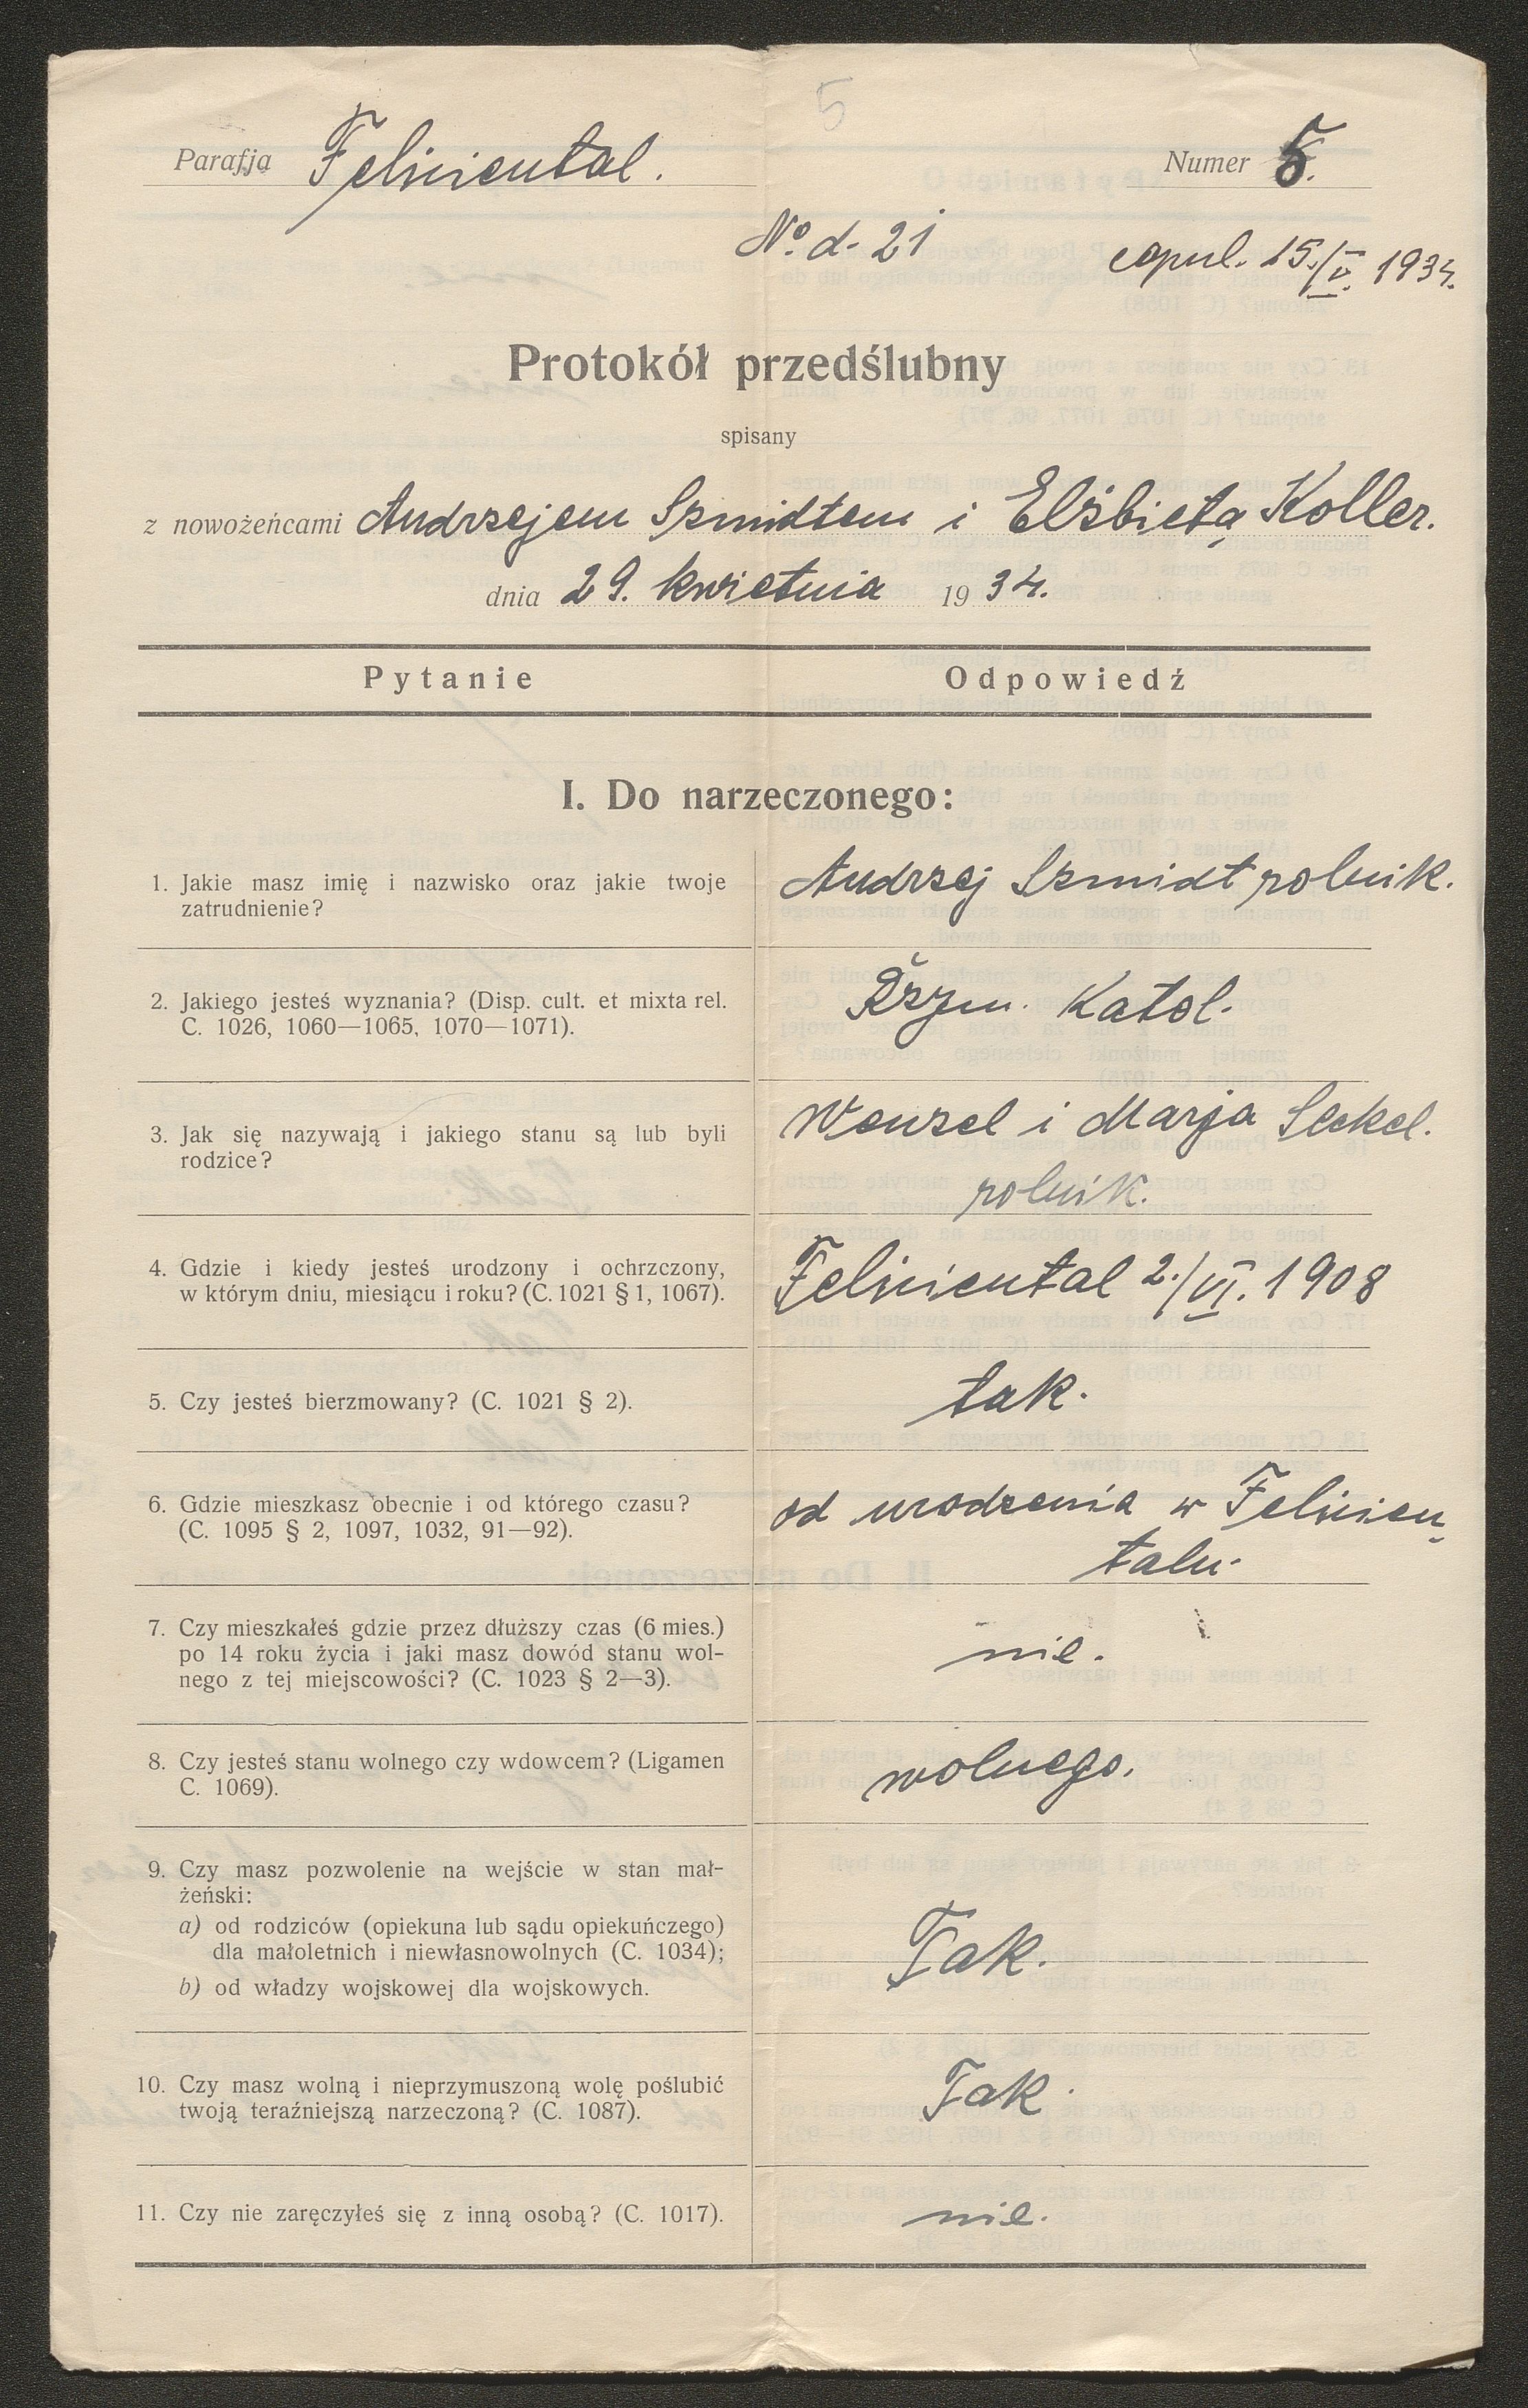 5
Parafja Feliciental. Numer 5.
No. d. 21 copul. 15./V. 1934.
Protokół przedślubny
spisany
z nowożeńcami Andrzejem Szmidtem i Elżbietą Koller.
dnia 29. kwietnia 1934.
Pytanie Odpowiedź
I. Do narzeczonego:
1. Jakie masz imię i nazwisko oraz jakie twoje
zatrudnienie?
Andrzej Szmidt rolnik.
2. Jakiego jesteś wyznania? (Disp. cult. et mixta rel.
C. 1026, 1060—1065, 1070—1071).
Rzym. Katol.
3. Jak się nazywają i jakiego stanu są lub byli
rodzice?
Wenzel i Marja Seckel.
rolnik.
4. Gdzie i kiedy jesteś urodzony i ochrzczony,
w którym dniu, miesiącu i roku? (C. 1021 § 1, 1067).
Feliciental 2./VI. 1908
5. Czy jesteś bierzmowany? (C. 1021 § 2).
tak.
6. Gdzie mieszkasz obecnie i od którego czasu?
(C. 1095 § 2, 1097, 1032, 91—92).
od urodzenia w Felicien-
talu.
7. Czy mieszkałeś gdzie przez dłuższy czas (6 mies.)
po 14 roku życia i jaki masz dowód stanu wol-
nego z tej miejscowości? (C. 1023 § 2—3).
nie.
8. Czy jesteś stanu wolnego czy wdowcem? (Ligamen
C. 1069).
wolnego.
9. Czy masz pozwolenie na wejście w stan mał-
żeński:
a) od rodziców (opiekuna lub sądu opiekuńczego)
dla małoletnich i niewłasnowolnych (C. 1034);
b) od władzy wojskowej dla wojskowych.
Tak.
10. Czy masz wolną i nieprzymuszoną wolę poślubić
twoją teraźniejszą narzeczoną? (C. 1087).
Tak.
11. Czy nie zaręczyłeś się z inną osobą? (C. 1017).
nie.